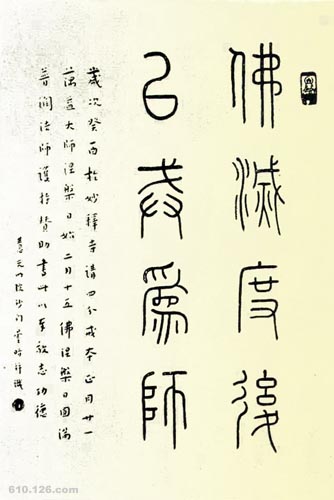 佛滅度後
以戒為師
歲次癸酉於妙釋寺講四分戒本正月廿一
蕅益大師涅槃日始二月十五佛涅槃日圓滿
普潤法師護持贊助書此以奉志功德
沙門曇昉并識
610.126.com